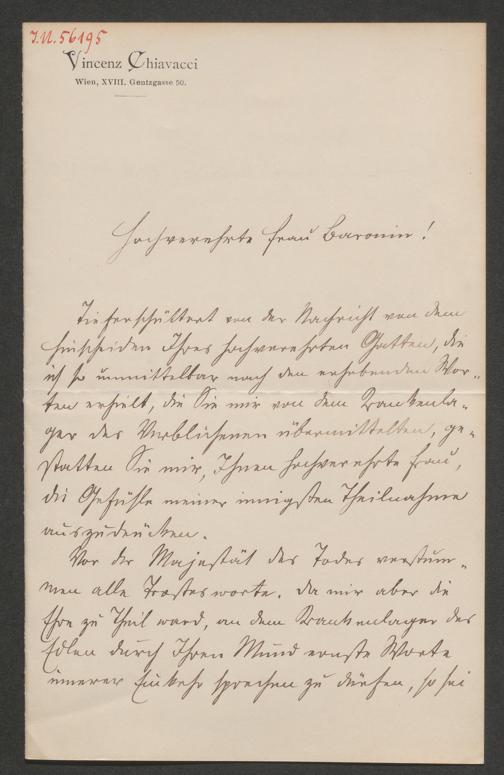 I.N. 56195
Vincenz Chiavacci
Wien, XVIII. Gentzgasse 50.
Hochverehrte Frau Baronin!
Tieferschüttert von der Nachricht von dem
Hinscheiden Ihres hochverehrten Gatten, die
ich so unmittelbar nach den erhebenden Wor-
ten erhielt, die Sie mir von dem Krankenla-
ger des Verblichenen übermittelten, ge-
statten Sie mir, Ihnen hochverehrte Frau,
die Gefühle meiner innigsten Theilnahme
auszudrücken.
Vor der Majestät des Todes verstum-
men alle Trostesworte. Da mir aber die
Ehre zu Theil ward, an dem Krankenlager des
Edlen durch Ihren Mund ernste Worte
innerer Einkehr sprechen zu dürfen, so sei